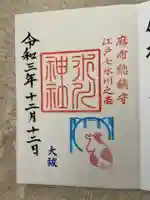 麻布総鎮守
江戸七氷川之一
氷川
神社
令和三年十二月十二日
大祓